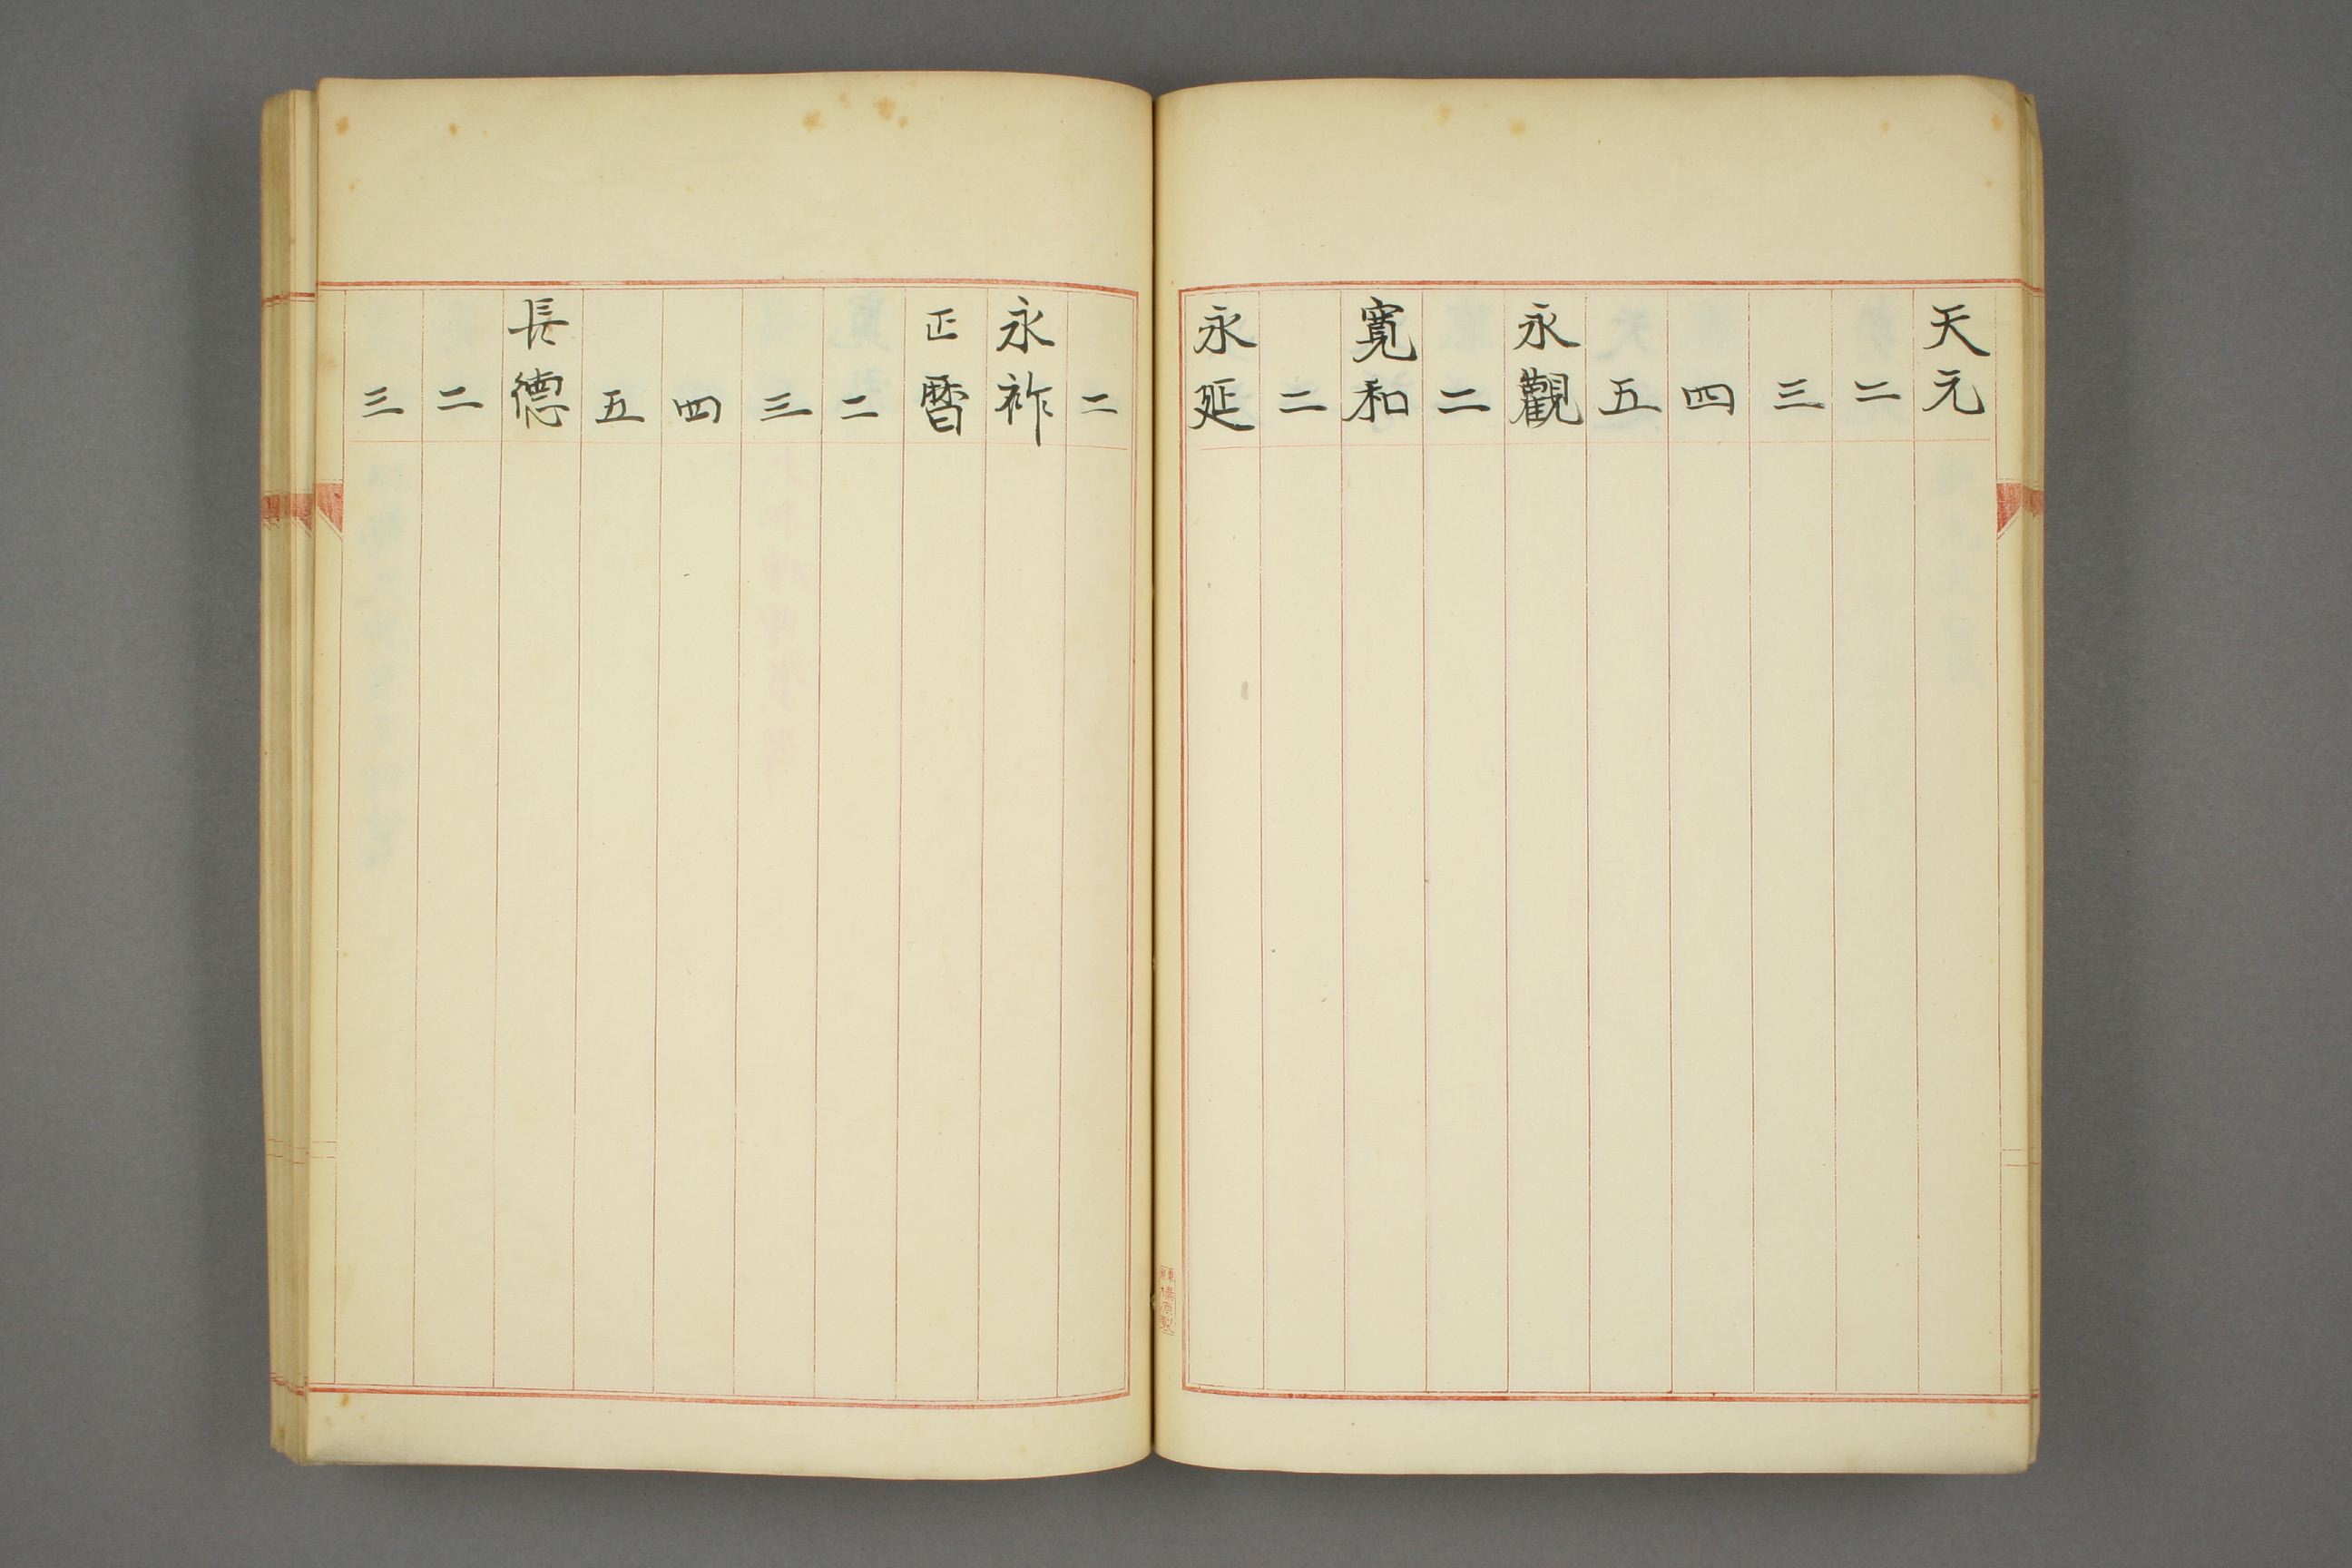 天元
二
三
四
五
永觀
二
寛和
二
永延
二
永祚
正暦
二
三
四
五
長德
二
三